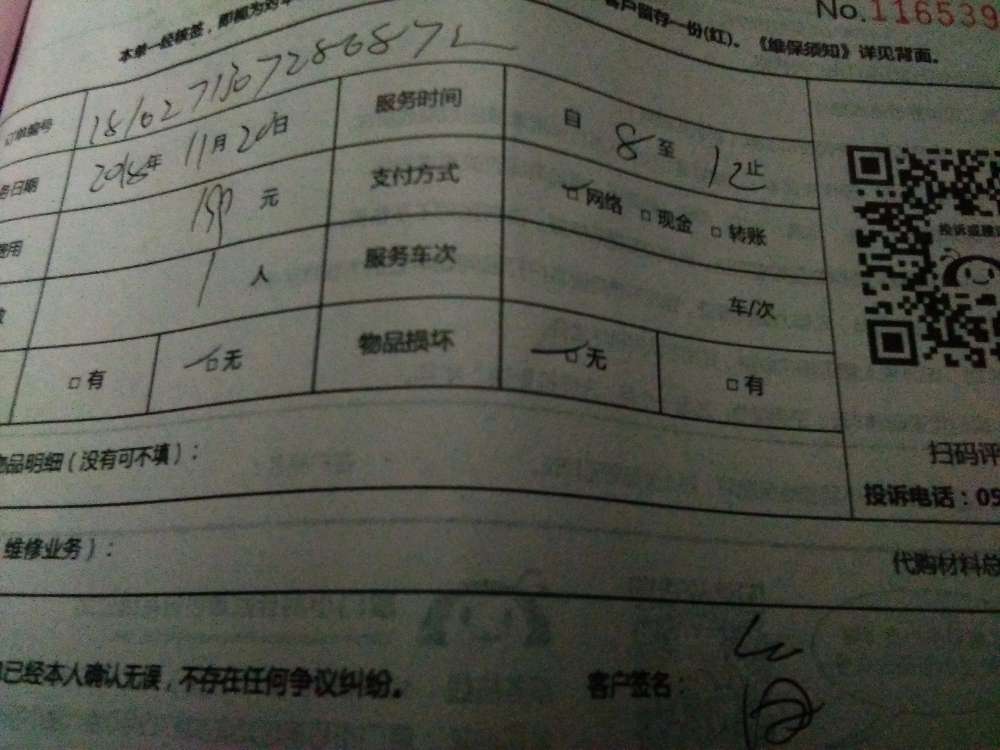 No.116539
本单一经核签，即视为对本
客户留存一份(红)。《维保须知》详见背面。
订单编号
服务时间 自 8 至 12 止
务日期 2018年 11月 20日
支付方式 □网络 □现金 □转账
费用 元
服务车次 车/次
数 1 人
□有 □无 物品损坏 □无 □有
投诉或建议
物品明细(没有可不填)：
扫码评
投诉电话：05
维修业务)：
代购材料总
已经本人确认无误，不存在任何争议纠纷。
客户签名：